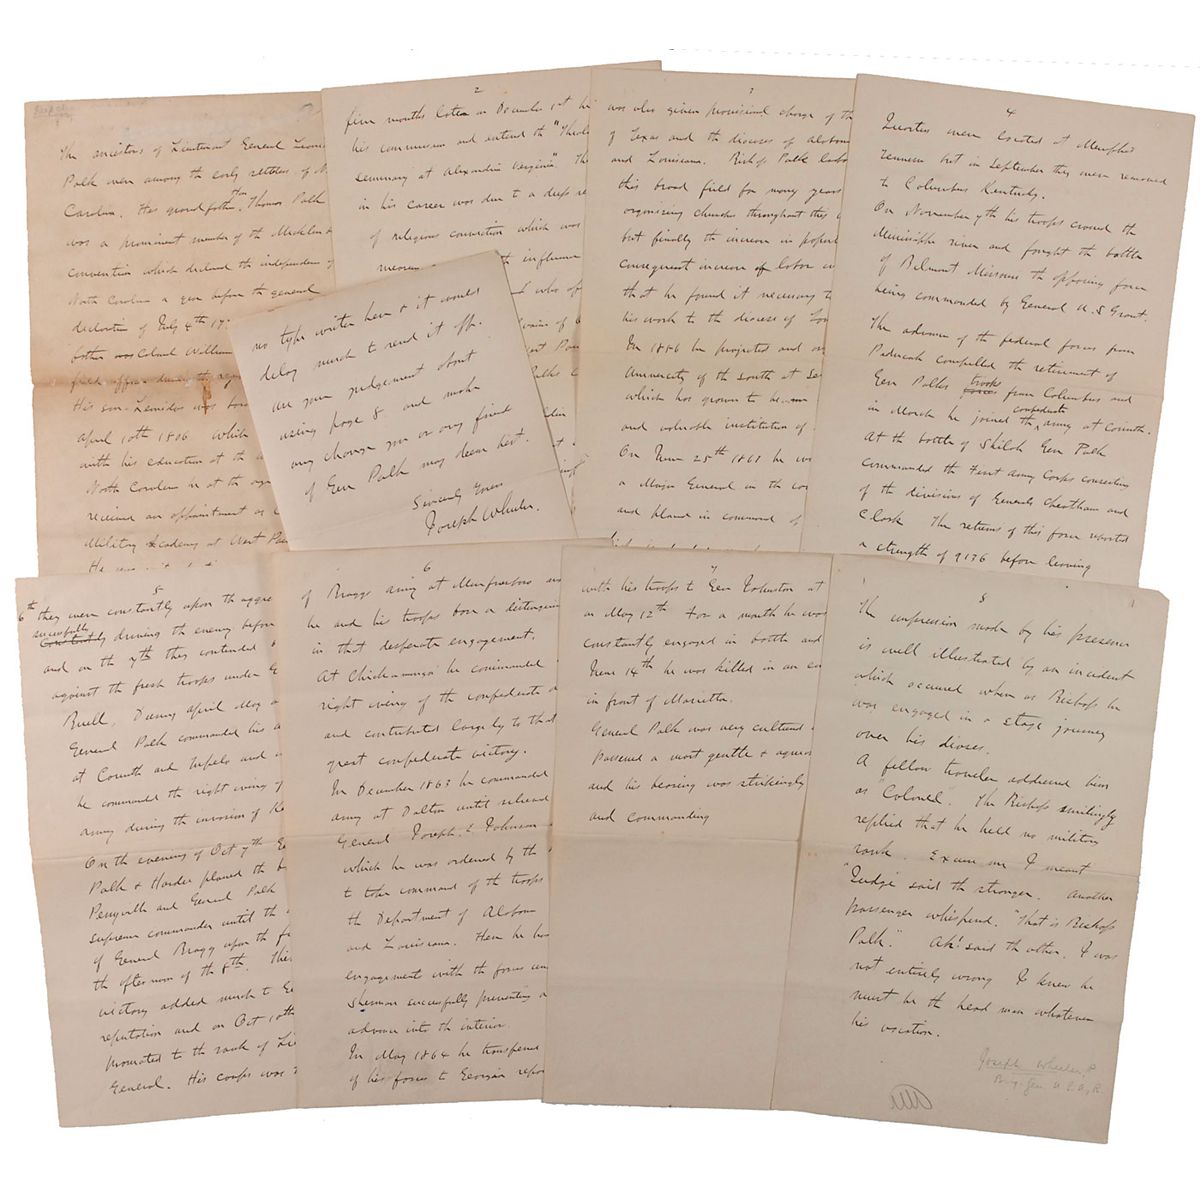 The ancestors of Lieutenant General Leonid
Polk were among the early settlers of N
Carolina. His grandfather, Thomas Polk
was a prominent member of the Mecklen
convention which declared the independence of
North Carolina a year before the general
declaration of July 4th 17
father was Colonel William
field officer during the
His son Leonidas was born
April 10th 1806 which
with his education at the
North Carolina he at the
received an appointment as
Military Academy at West Poin
2
five months later on December 1st he
his commission and entered the "Theolo
Seminary at Alexandria Virginia". The
in his career was due to a deep
of religious conviction which was
influence
who
3
was also given provisional charge of the
of Texas and the dioceses of Alabama
and Louisiana. Bishop Polk
this broad field for many years
organizing churches throughout this
but finally the increase in
consequent increase of labor
that he found it necessary to
his work to the diocese of Lou
In 1856 he projected and
University of the South at Se
which has grown to
and valuable institution of
On June 25th 1861 he wa
a Major General in the con
and placed in command of
4
were located at Memphis
Tennessee but in September they were removed
to Columbus Kentucky.
On November 7th his troops crossed the
Mississippi river and fought the battle
of Belmont Missouri the opposing force
being commanded by General U. S Grant.
The advance of the federal forces from
Paducah compelled the retirement of
Gen Polks force troops from Columbus and
in March he joined the confederate army at Corinth.
At the battle of Shiloh Gen Polk
commanded the First Army Corps consisting
of the divisions of Generals Cheatham and
Clark The returns of this force reported
a strength of 9136 before leaving
no type writer here & it would
delay much to send it off.
use your judgement about
using page 8 and make
any change you or any friend
of Gen Polk may deem best.
Sincerely Yours
Joseph Wheeler.
5
6th they were constantly upon the aggre
Constantly successfully driving the enemy before
and on the 7th they contended
against the fresh troops under G
Buell. During April May
General Polk commanded his
at Corinth and Tupelo and
he commanded the right wing of
army during the invasion of K
On the evening of Oct 7th G
Polk & Hardee planned the b
Perryville and General Polk
supreme commander until the
of General Bragg upon the fi
the afternoon of the 8th. This
victory added much to G
reputation and on Oct 10th
promoted to the rank of Lie
General. His corps was
6
of Braggs army at Murfreesboro
he and his troops bore a distinguis
in that desperate engagement.
At Chickamauga he commanded
right wing of the confederate a
and contributed largely to that
great confederate victory.
In December 1863 he commanded
army at Dalton until relieved
General Joseph. E Johnson
which he was ordered by the
to take command of the troops
the Department of Alabama
and Louisiana. Here he had
engagement with the forces un
Sherman successfully preventing a
advance into the interior.
In May 1864 he transferred
of his forces to Georgia repor
7
with his troops to Gen Johnston at
on May 12th For a month he was
constantly engaged in battle and
June 14th he was killed in an en
in front of Marietta.
General Polk was very cultured
possessed a most gentle &
and his bearing was strikingly
and commanding
8
The impression made by his presence
is well illustrated by an incident
which occured when as Bishop he
was engaged in a stage journey
over his diocese.
A fellow traveler addressed him
as "Colonel". The Bishop smilingly
replied that he held no military
rank. Excuse me I meant
"Judge" said the stranger. Another
passenger whispered. "That is Bishop
Polk". Ah! said the other. I was
not entirely wrong I knew he
must be the head man whatever
his vocation.
Joseph Wheeler
Brig. Gen U.S.A,